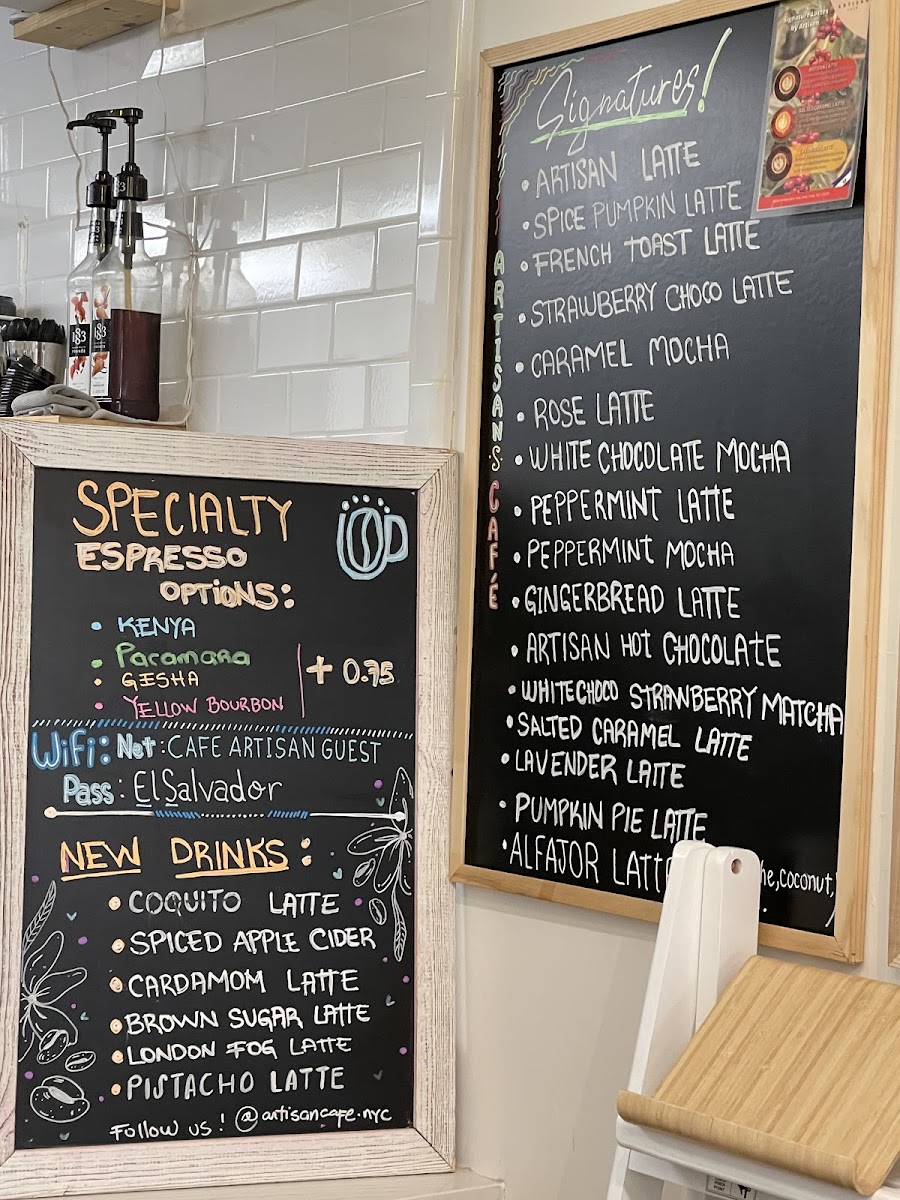 SPECIALTY
ESPRESSO
OPTIONS:
• KENYA
• Pacamara
• GEISHA
• YELLOW BOURBON
+ 0.75
WiFi: Net: CAFE ARTISAN GUEST
Pass: ElSalvador
NEW DRINKS:
• COQUITO LATTE
• SPICED APPLE CIDER
• CARDAMOM LATTE
• BROWN SUGAR LATTE
• LONDON FOG LATTE
• PISTACHO LATTE
Follow us! @artisancafe.nyc
Signatures!
ARTISANS CAFÉ
• ARTISAN LATTE
• SPICE PUMPKIN LATTE
• FRENCH TOAST LATTE
• STRAWBERRY CHOCO LATTE
• CARAMEL MOCHA
• ROSE LATTE
• WHITE CHOCOLATE MOCHA
• PEPPERMINT LATTE
• PEPPERMINT MOCHA
• GINGERBREAD LATTE
• ARTISAN HOT CHOCOLATE
• WHITE CHOCO STRANBERRY MATCHA
• SALTED CARAMEL LATTE
• LAVENDER LATTE
• PUMPKIN PIE LATTE
• ALFAJOR LATTE he, coconut,)
Signature Lattes
by Artisan
ARTISAN LATTE
SALTED CARAMEL LATTE
1883
1883